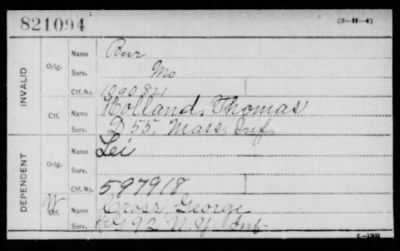 821094
(3-H-4)
INVALID
Orig.
Name
Bur
Serv.
Mo
Ctf. No.
1090821
Ctf.
Name
Holland, Thomas
Serv.
D 55, Mass. Inf.
DEPENDENT
Orig.
Name
Lei
Serv.
Ctf. No.
597918
W
Ctf.
Name
Cross, George
Serv.
92 N.Y. Inf.